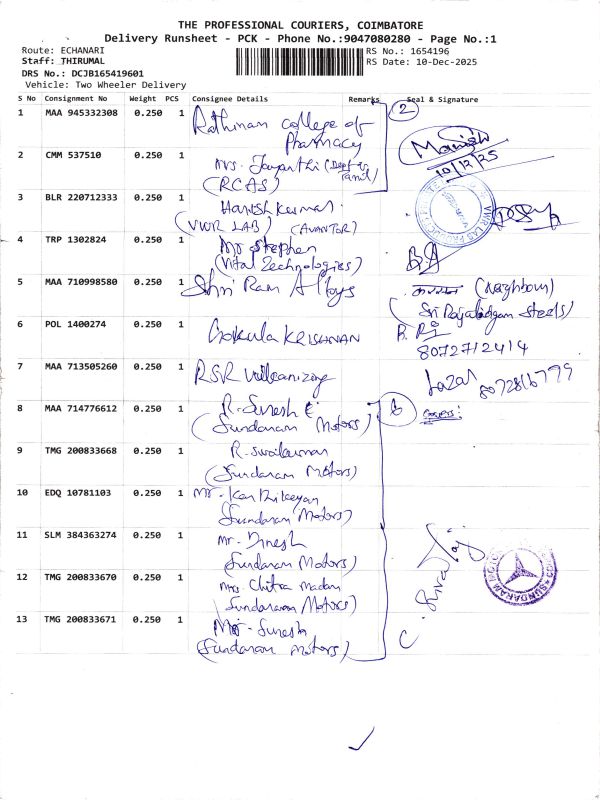 THE PROFESSIONAL COURIERS, COIMBATORE
Delivery Runsheet - PCK - Phone No.:9047080280 - Page No.:1
Route: ECHANARI
RS No.: 1654196
Staff: THIRUMAL
RS Date: 10-Dec-2025
DRS No.: DCJB165419601
Vehicle: Two Wheeler Delivery
S No Consignment No Weight PCS Consignee Details Remarks Seal & Signature
1 MAA 945332308 0.250 1 Rathinam college of Pharmacy
2
10/12/25
2 CMM 537510 0.250 1 Mrs. Jayanthi (Dept of Tamil)
(RCAS)
3 BLR 220712333 0.250 1 Harish Kumar
(VWR LAB) (AVANTOR)
4 TRP 1302824 0.250 1 Mr Stephen
(Vital Technologies)
5 MAA 710998580 0.250 1 Shri Ram Alloys
(Neighbour)
(Sri Rajalingam Steels)
6 POL 1400274 0.250 1 Gokula KRISHNAN
8072712414
7 MAA 713505260 0.250 1 RSR Vulcanizing
8072816779
8 MAA 714776612 0.250 1 R. Suresh
(Sundaram Motors)
6
9 TMG 200833668 0.250 1 R. Sivakumar
(Sundaram Motors)
10 EDQ 10781103 0.250 1 Mr. Karthikeyan
(Sundaram Motors)
11 SLM 384363274 0.250 1 Mr. Dinesh
(Sundaram Motors)
12 TMG 200833670 0.250 1 Mrs. Chitra Madam
(Sundaram Motors)
13 TMG 200833671 0.250 1 Mr. Suresh
(Sundaram Motors)
SUNDARAM MOTORS